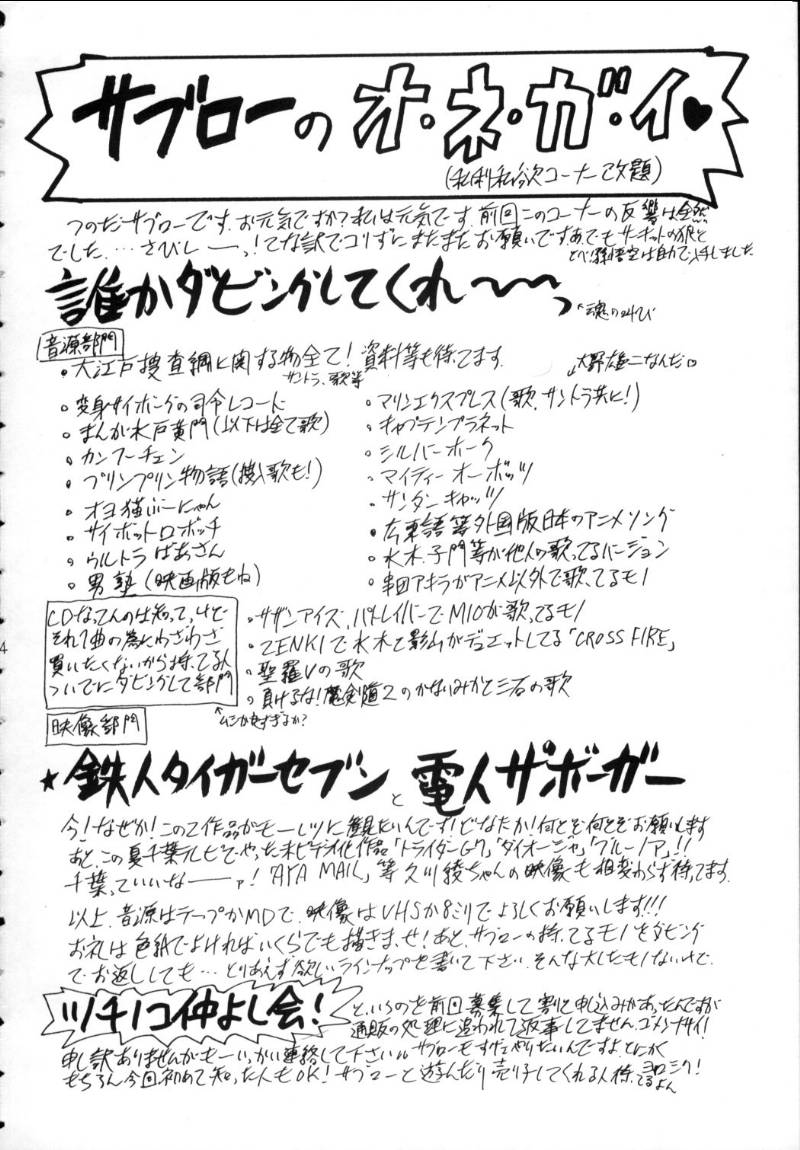 サブローのオ・ネ・ガ・イ♥
(私利私欲コーナー改題)
つのだサブローです。お元気ですか?私は元気です。前回このコーナーの反響は全然
でした…さびしーっ!てな訳でコリずにまたまたお願いです。あ、でもサーキットの狼と
とべ!孫悟空は自力で入手しました。
誰かダビングしてくれ〜〜っ
↑魂の叫び
音源部門
・大江戸捜査網に関する物全て!資料等も待ってます。
サントラ、歌等
・変身サイボーグの司令レコード
・まんが水戸黄門(以下は全て歌)
・カンフーチェン
・プリンプリン物語(挿入歌も!)
・オヨ猫ぶーにゃん
・サイボットロボッチ
・ウルトラばあさん
・男塾(映画版もね)
大野雄二なんだ♡
・マリンエクスプレス(歌、サントラ共に!)
・キャプテンプラネット
・シルバーホーク
・マイティーオーボッツ
・サンダーキャッツ
・広東語等外国版日本のアニメソング
・水木、子門等が他人の歌ってるバージョン
・串田アキラがアニメ以外で歌ってるモノ
CDなってんのは知ってっけど
それ1曲の為にわざわざ
買いたくないから持ってる人
ついでにダビングして部門
↑ムシが良すぎるか?
・サザンアイズ、パトレイバーでMIOが歌ってるモノ
・ZENKIで水木と影山がデュエットしてる「CROSS FIRE」
・聖羅Vの歌
・負けるな!魔剣道2のかないみかと三石の歌
映像部門
★鉄人タイガーセブンと電人ザボーガー
今!なぜか!この2作品がモーレツに観たいんです!どなたか!何とぞ何とぞお願いします
あと、この夏千葉テレビでやった未ビデオ化作品「トライダーG7」「ダイオージャ」「クルーノア」!!
千葉っていいなーァ!「AYA MAIL」等久川綾ちゃんの映像も相変わらず待ってます。
以上、音源はテープかMDで、映像はVHSか8ミリでよろしくお願いします!!!
お礼は色紙でよければいくらでも描きまっせ!あと、サブローの持ってるモノをダビング
でお返ししても…とりあえず欲しいラインナップを書いて下さい。そんな大したモノないけど。
ツチノコ仲よし会!
というのを前回募集して割と申込みがあったんですが
通販の処理に追われて返事してません。ゴメンナサイ!
申し訳ありませんがもーいっかい連絡して下さい。サブローもすげェやりたいんですよ、とにかく
もちろん今回初めて知った人もOK!サブローと遊んだり売り子してくれる人待ってるよん
ヨロシク!
4